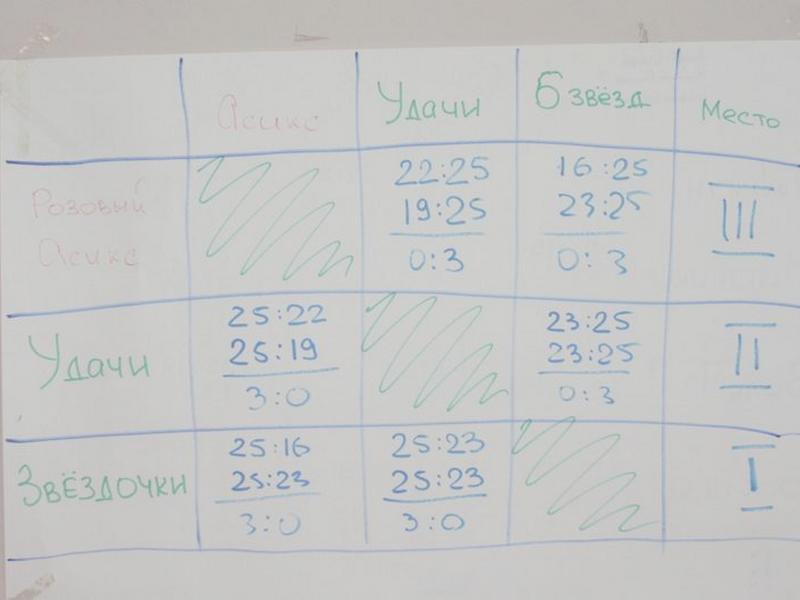 Асикс Удачи 6 звёзд Место
Розовый
Асикс
22:25
19:25
0:3
16:25
23:25
0:3
III
Удачи
25:22
25:19
3:0
23:25
23:25
0:3
II
Звёздочки
25:16
25:23
3:0
25:23
25:23
3:0
I